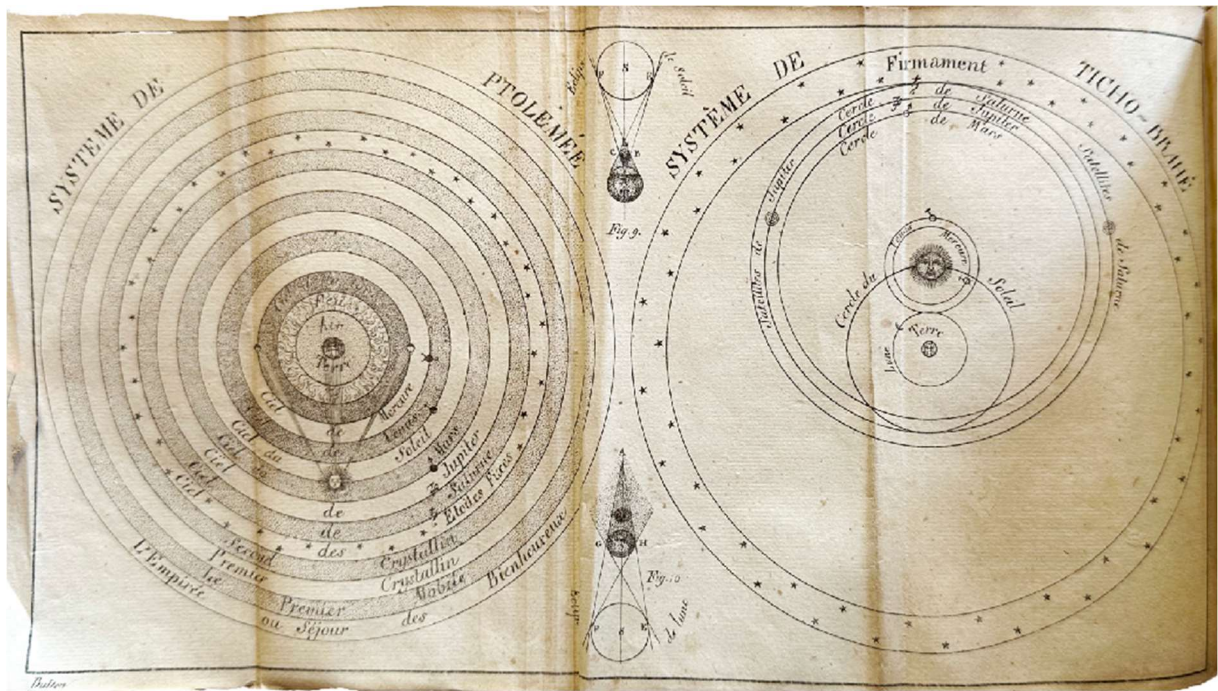 SYSTÈME DE PTOLÉMÉE
Feu
Air
Terre
Ciel de Mercure
Ciel de Venus
Ciel du Soleil
Ciel de Mars
Ciel de Jupiter
Ciel de Saturne
Ciel des Etoiles Fixes
Second Crystallin
Premier Crystallin
Le Premier Mobile
L'Empire ou Séjour des Bienheureux
S
le Soleil
C B
Fig. 9.
A
G H
Fig. 10
de lune
SYSTÈME DE TICHO-BRAHÉ
Firmament
Cercle de Saturne
Cercle de Jupiter
Cercle de Mars
Satellites de Jupiter
Satellites de Saturne
Venus
Mercure
Cercle du Soleil
Terre
Lune